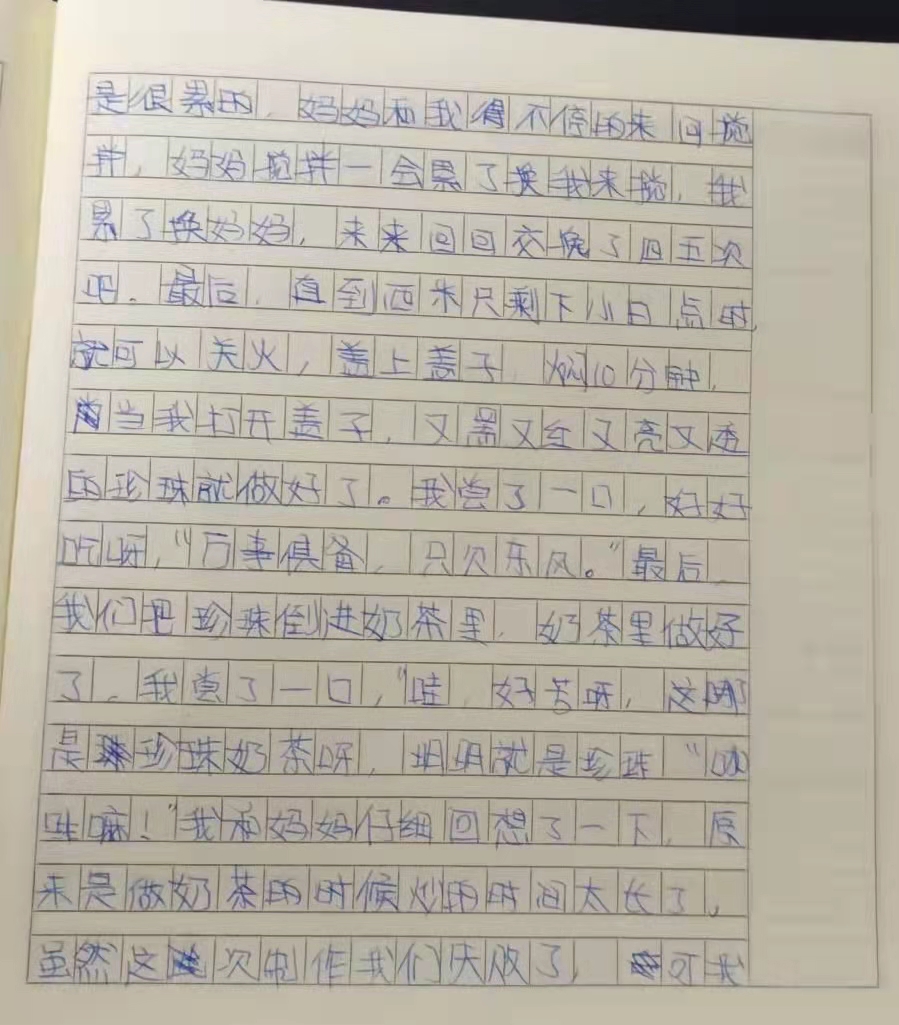 是很累的，妈妈和我得不停的来回搅
拌，妈妈搅拌一会累了换我来搅，我
累了换妈妈，来来回回交换了四五次
吧。最后，直到西米只剩下小白点时，
就可以关火，盖上盖子，焖10分钟，
当我打开盖子，又黑又红又亮又透
的珍珠就做好了。我尝了一口，好好
吃呀，“万事俱备，只欠东风。”最后，
我们把珍珠倒进奶茶里，奶茶里做好
了。我尝了一口，“哇，好苦呀，这哪
是珍珠奶茶呀，明明就是珍珠“咖
啡嘛！”我和妈妈仔细回想了一下，原
来是做奶茶的时候炒的时间太长了，
虽然这次制作我们失败了，可我